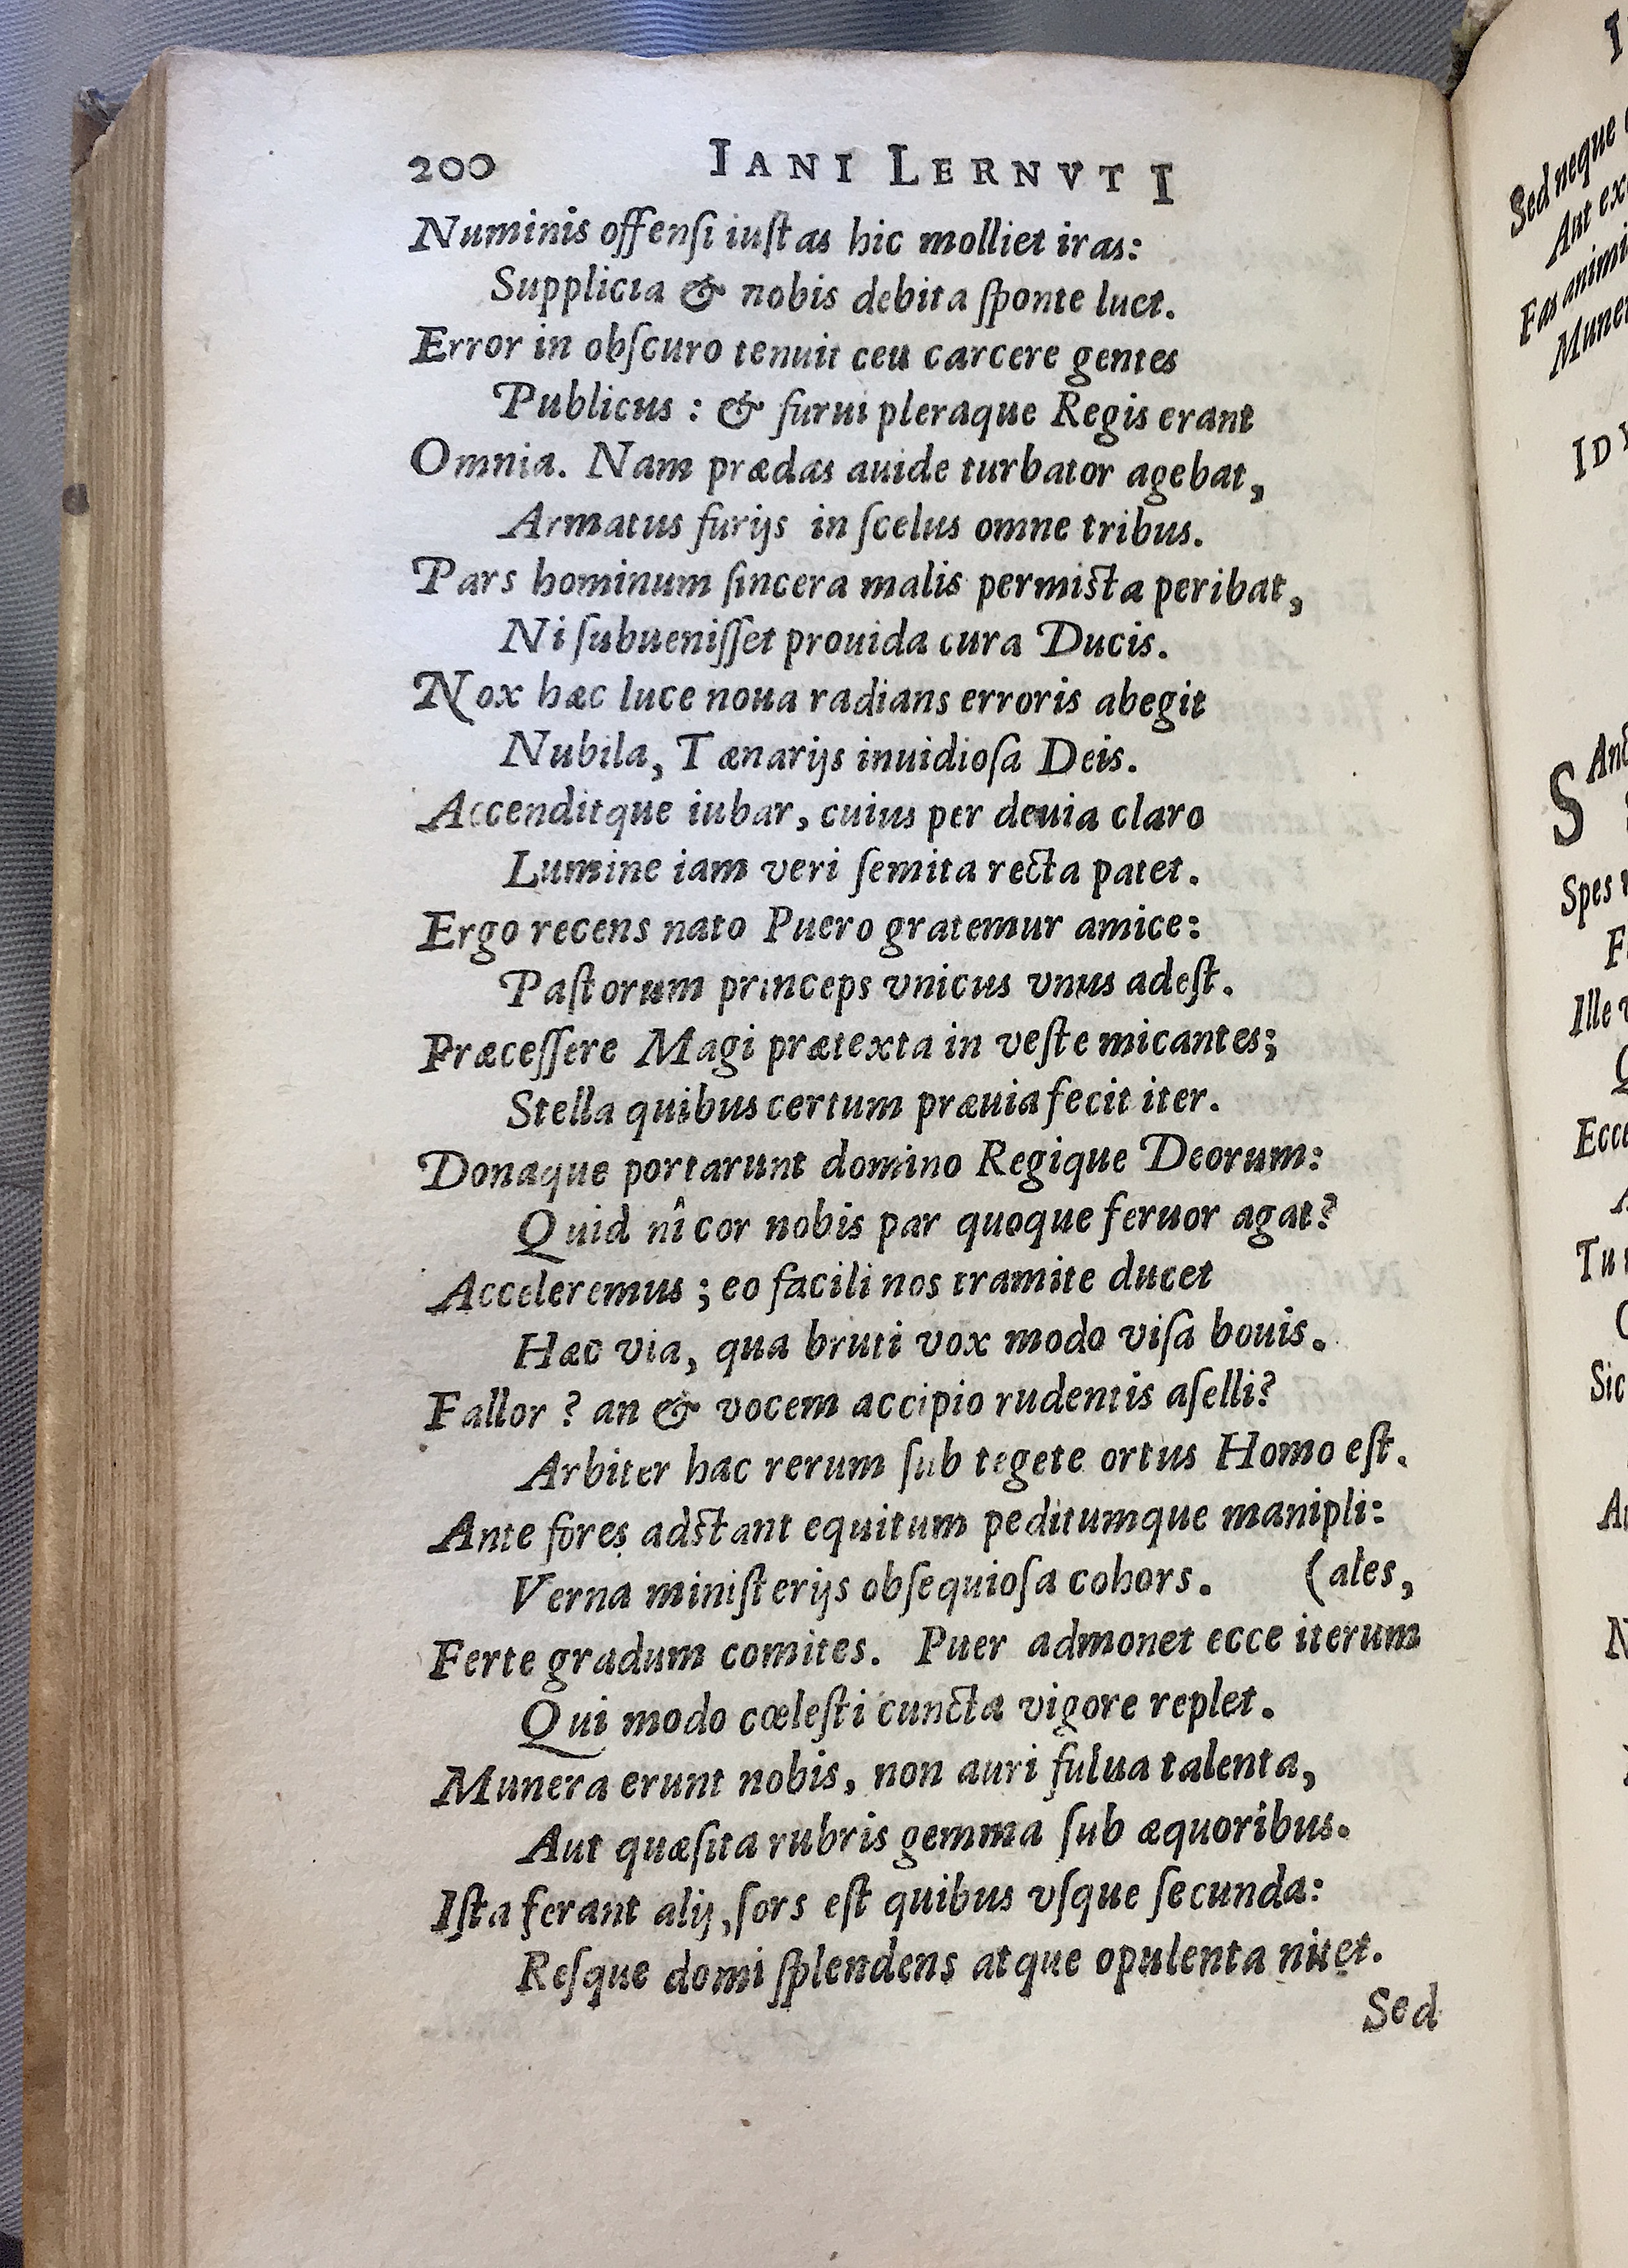 200 IANI LERNVTI
Numinis offenſi iuſtas hic molliet iras:
Supplicia & nobis debita ſponte luet.
Error in obſcuro tenuit ceu carcere gentes
Publicus: & furui pleraque Regis erant
Omnia. Nam prædas auide turbator agebat,
Armatus furijs in ſcelus omne tribus.
Pars hominum ſincera malis permista peribat,
Ni ſubueniſſet prouida cura Ducis.
Nox hæc luce noua radians erroris abegit
Nubila, Tænarijs inuidioſa Deis.
Accenditque iubar, cuius per deuia claro
Lumine iam veri ſemita recta patet.
Ergo recens nato Puero gratemur amice:
Paſtorum princeps vnicus vnus adeſt.
Præceſſere Magi prætexta in veſte micantes;
Stella quibus certum præuia fecit iter.
Donaque portarunt domino Regique Deorum:
Quid nî cor nobis par quoque feruor agat?
Acceleremus; eo facili nos tramite ducet
Hæc via, qua bruti vox modo viſa bouis.
Fallor? an & vocem accipio rudentis aſelli?
Arbiter hac rerum ſub tegete ortus Homo eſt.
Ante fores adstant equitum peditumque manipli:
Verna miniſterijs obſequioſa cohors. (ales,
Ferte gradum comites. Puer admonet ecce iterum
Qui modo cœleſti cuncta vigore replet.
Munera erunt nobis, non auri fulua talenta,
Aut quæſita rubris gemma ſub æquoribus.
Iſta ferant alij, ſors eſt quibus vſque ſecunda:
Reſque domi ſplendens atque opulenta nitet.
Sed
Sed neque
Aut
Fas
ID
S
Spes
Ille
Tu
Sic